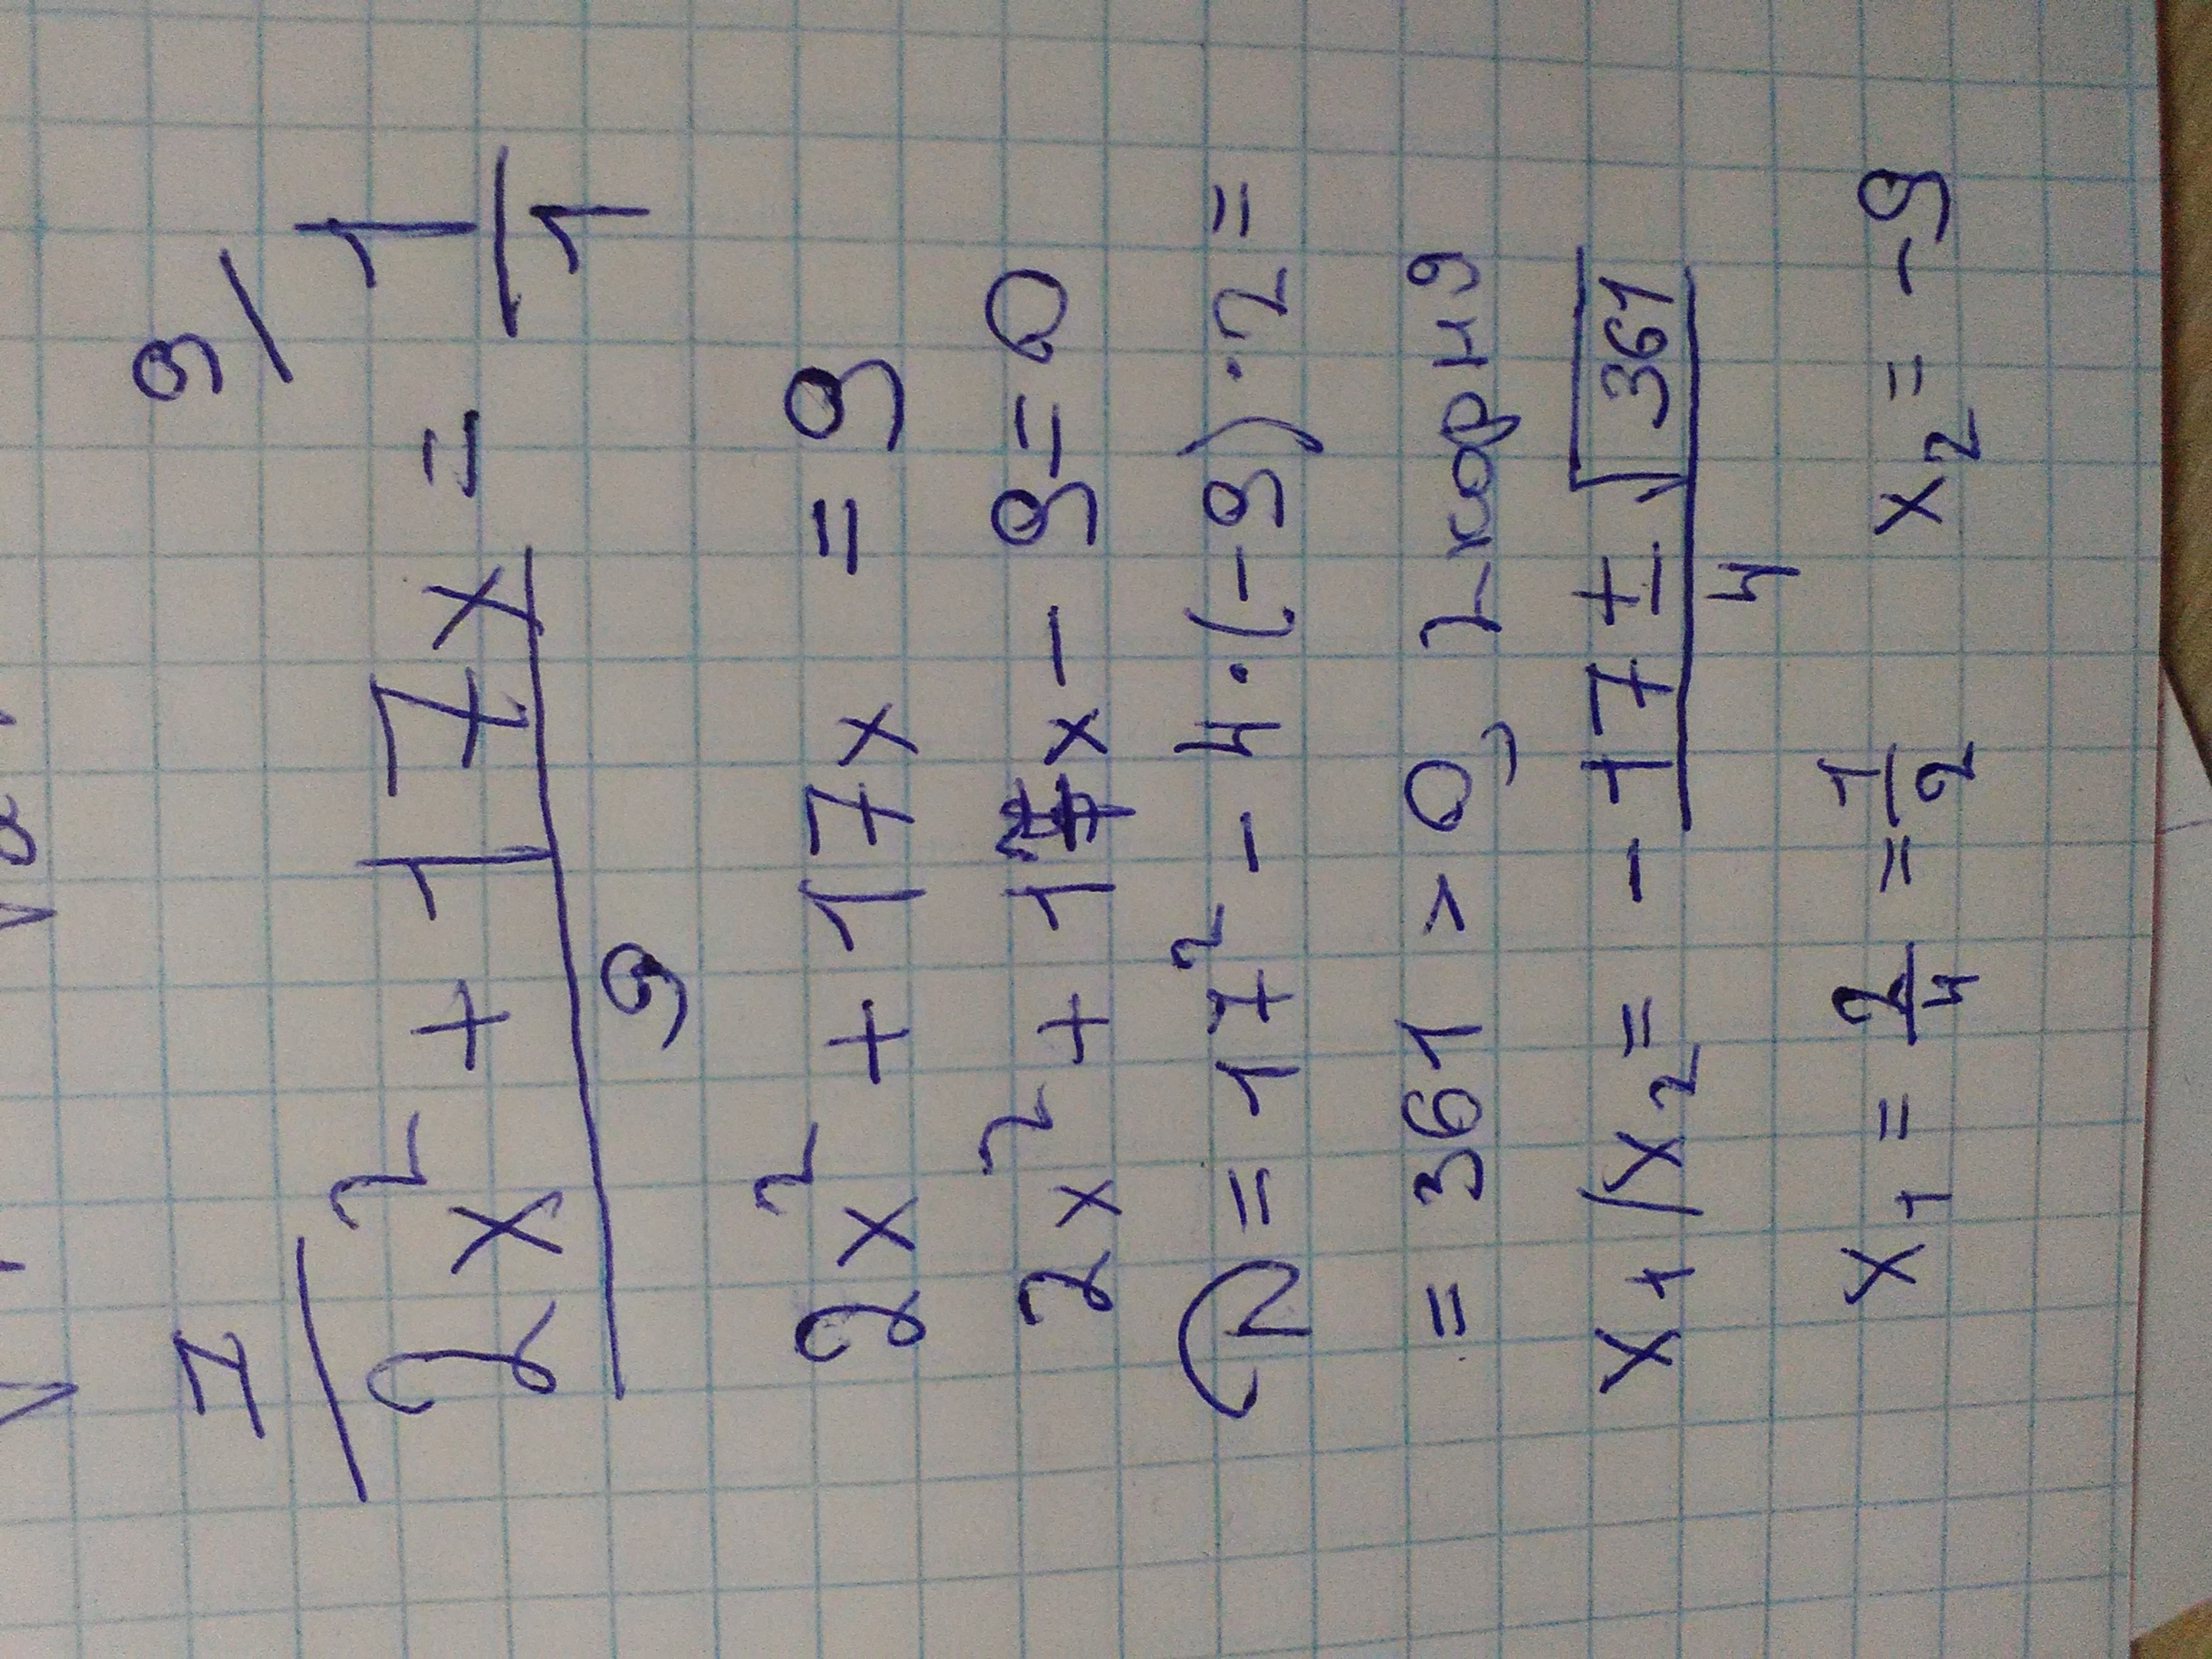 1/ 9/
2x² + 17x / 9 = 1/1
2x² + 17x = 9
2x² + 17x - 9 = 0
D = 17² - 4·(-9)·2 =
= 361 > 0, 2 корня
x₁/x₂ = -17 ± √361 / 4
x₁ = 2/4 = 1/2 x₂ = -9